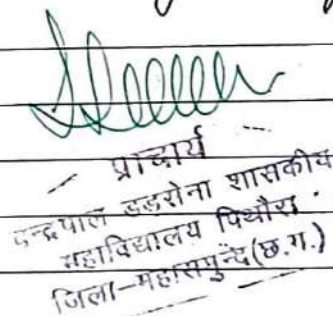 प्राचार्य
चन्द्रपाल डडसेना शासकीय
महाविद्यालय पिथौरा
जिला-महासमुन्द (छ.ग.)